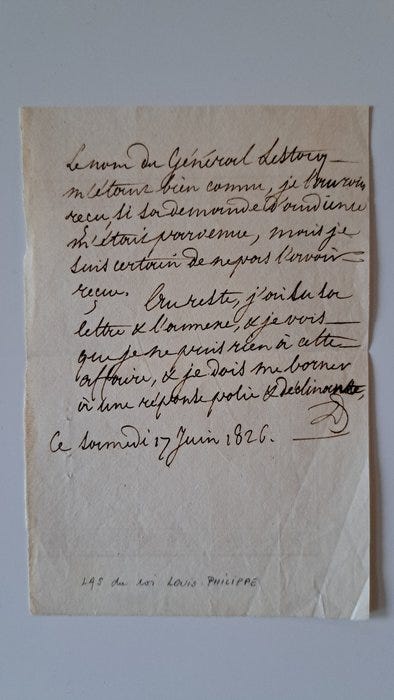 Le nom du Général Lestocq
m'étant bien connu, je l'aurois
reçu, si sa demande d'audience
m'était parvenue, mais je
suis certain de ne pas l'avoir
reçue. Au reste, j'ai lu sa
lettre & l'annexe, & je vois
que je ne puis rien à cette
affaire, & je dois me borner
à une réponse polie & declinante,
Ce samedi 17 Juin 1826.
LAS du roi LOUIS-PHILIPPE